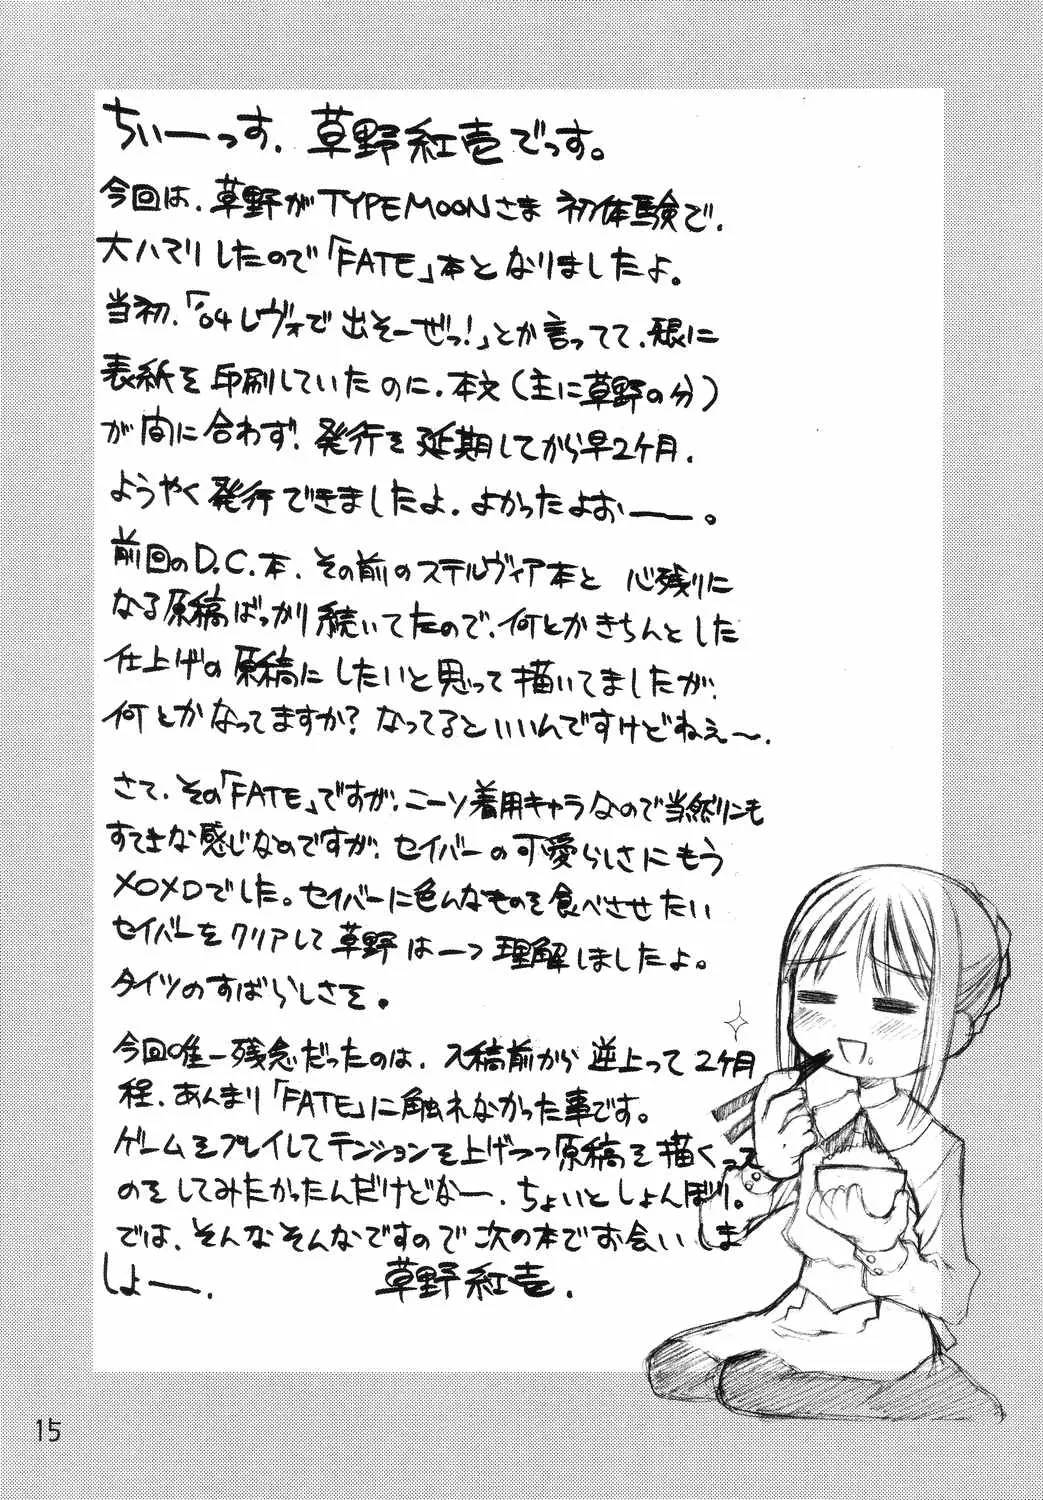 ちぃーっす、草野紅壱でっす。
今回は、草野がTYPEMOONさま 初体験で、
大ハマりしたので「FATE」本となりましたよ。
当初、「'04レヴォで出そーぜっ!」とか言ってて、
表紙を印刷していたのに、本文(主に草野の分)
が間に合わず、発行を延期してから早2ケ月、
ようやく発行できましたよ、よかったよおー。
前回のD.C.本、その前のステルヴィア本と 心残りに
なる原稿ばっかり続いてたので、何とかきちんとした
仕上げの原稿にしたいと思って描いてましたが、
何とかなってますか?なってるといいんですけどねぇ〜、
さて、その「FATE」ですが、ニーソ着用キャラなので当然リンも
すてきな感じなのですが、セイバーの可愛らしさにもう
XOXOでした。セイバーに色んなものを食べさせたい
セイバーをクリアして草野は一つ理解しましたよ。
タイツのすばらしさを。
今回唯一残念だったのは、入稿前から逆上って2ケ月
程、あんまり「FATE」に触れなかった事です。
ゲームをプレイしてテンションを上げつつ原稿を描くって
のをしてみたかったんだけどなー、ちょいとしょんぼり。
では、そんなそんなですので次の本でお会いしま
しょー、 草野紅壱、
15